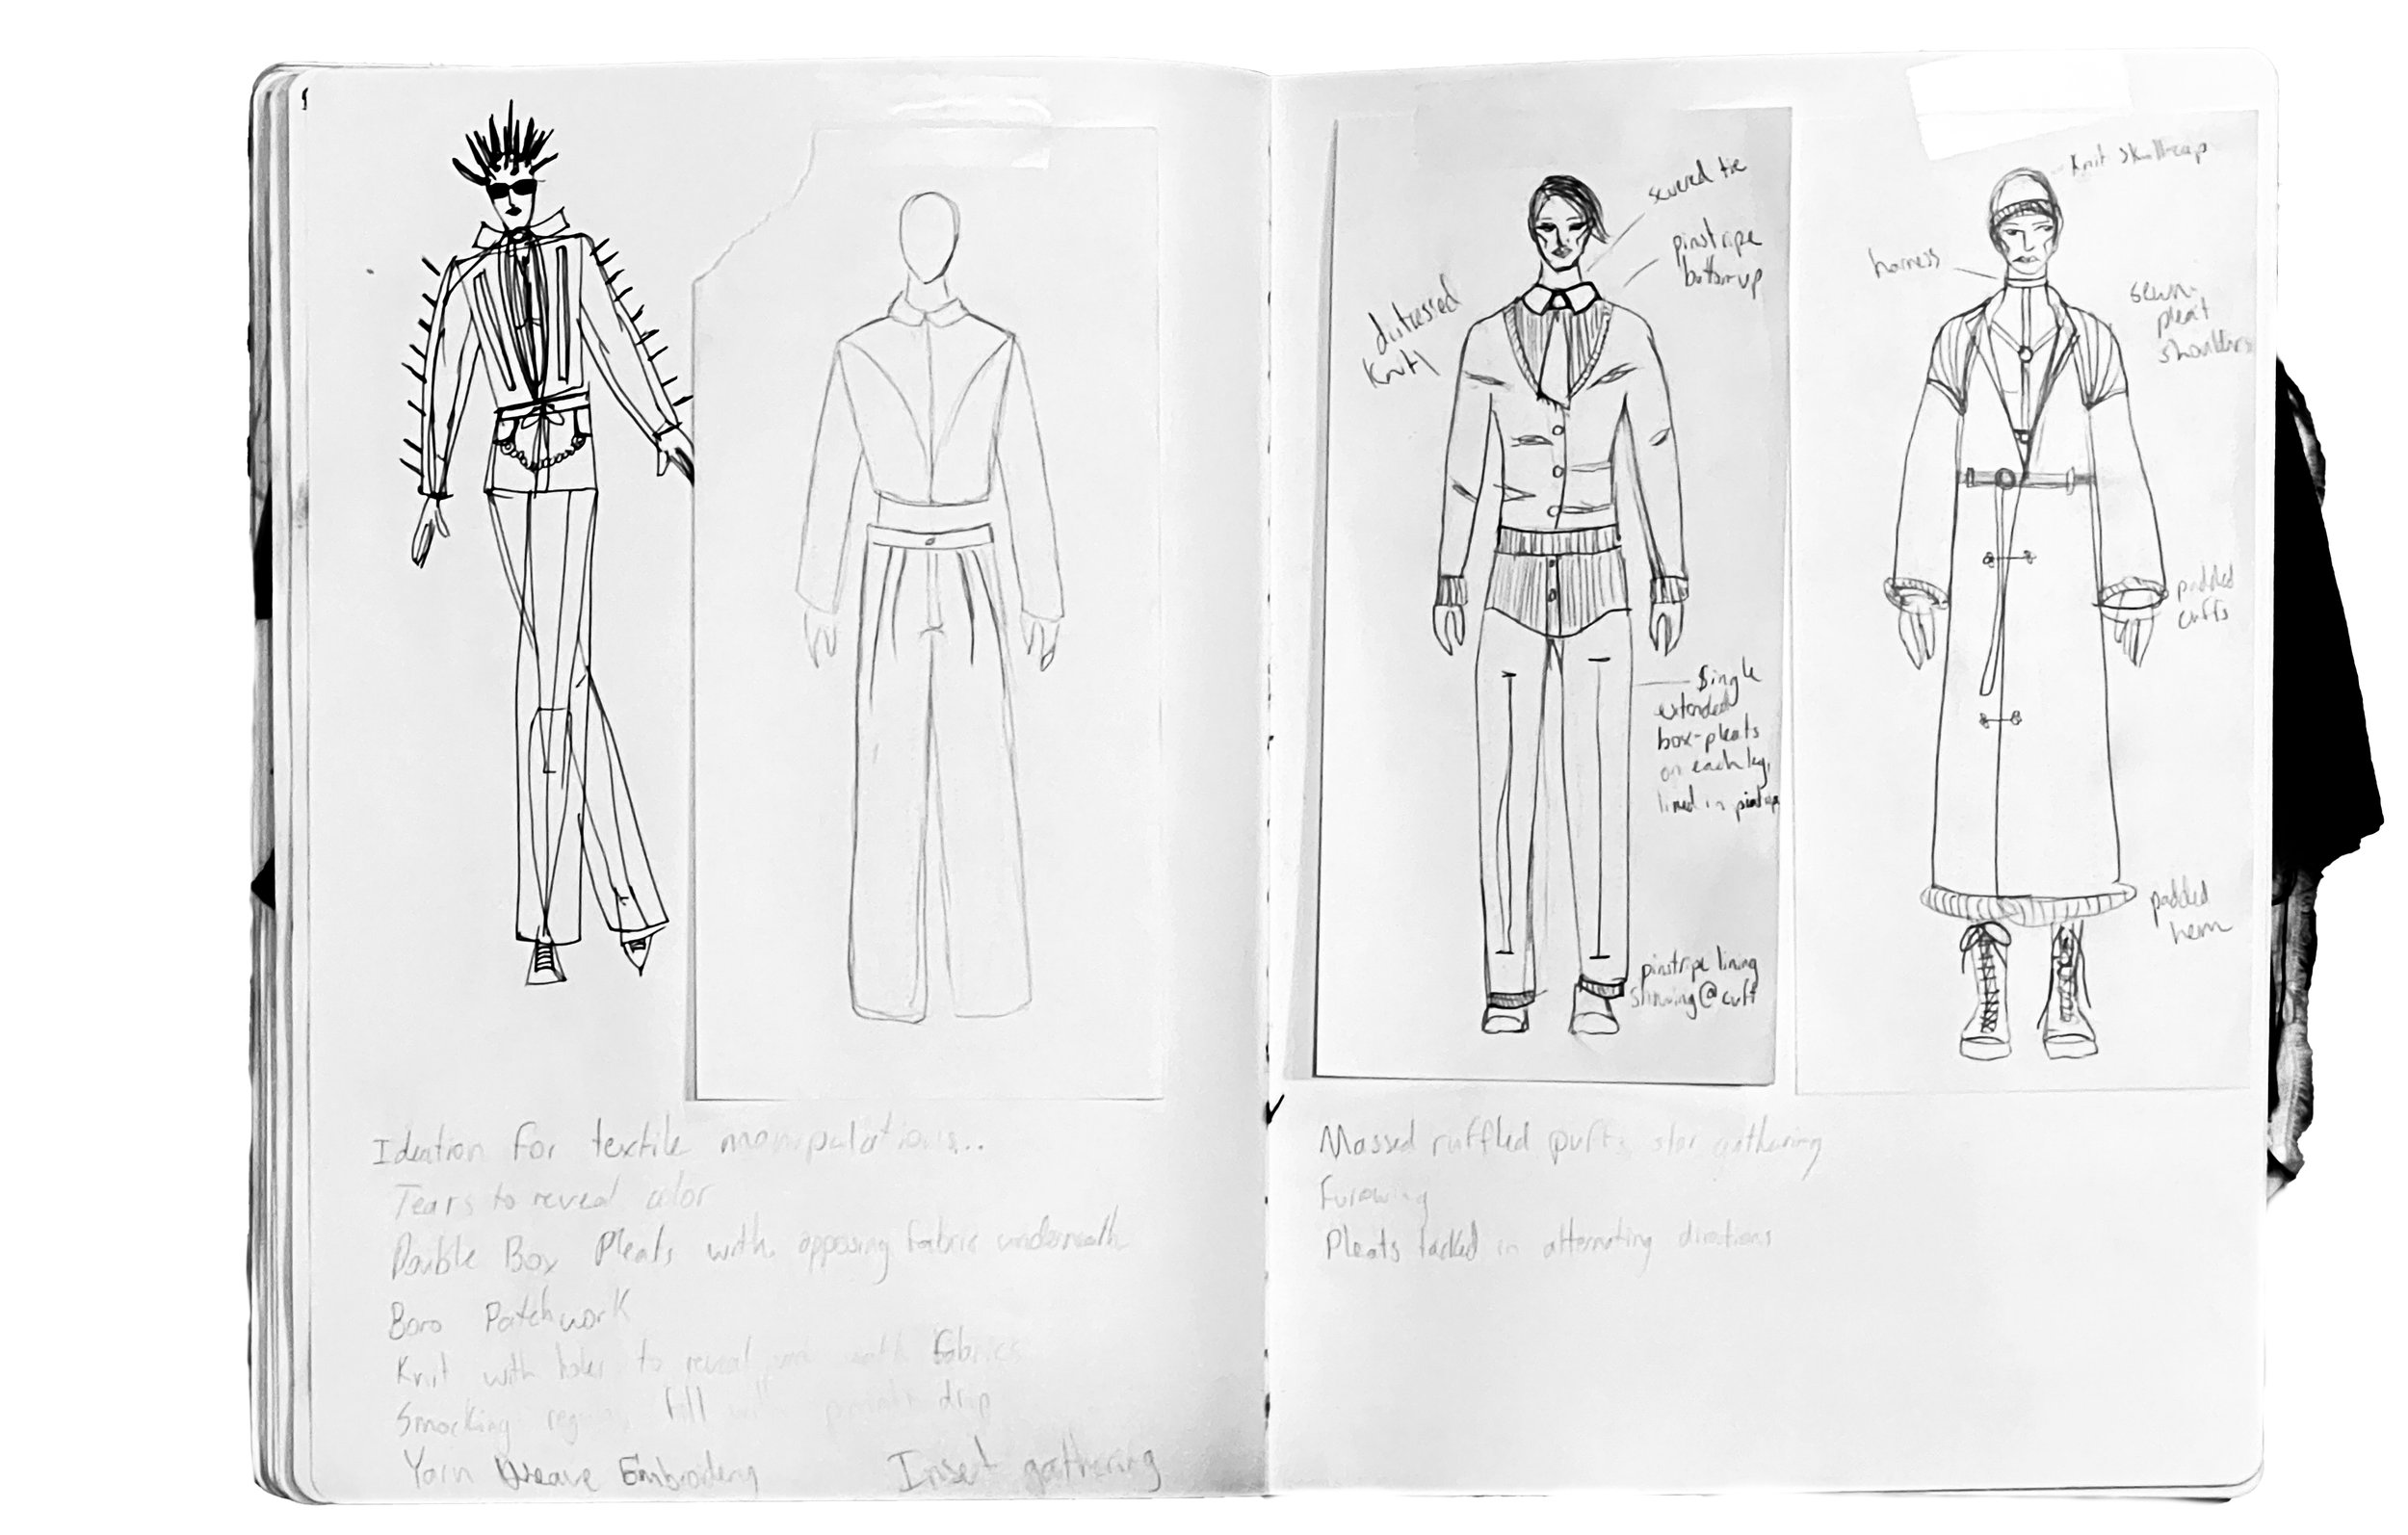 Ideation for textile manipulations...
Tears to reveal color
Double Box Pleats with opposing fabric underneath
Boro Patchwork
Knit with holes to reveal fabrics
Smocking fill drip
Yarn Weave Embroidery
Insert gathering
severed tie
pinstripe
button-up
distressed
Knit
Single
extended
box-pleats
on each leg,
lined in
pinstripe lining
showing @ cuff
Knit skull-cap
harness
sewn-
pleat
shoulders
padded
cuffs
padded
hem
Massed ruffled puffs, star gathering
Furowing
Pleats tacked in alternating directions